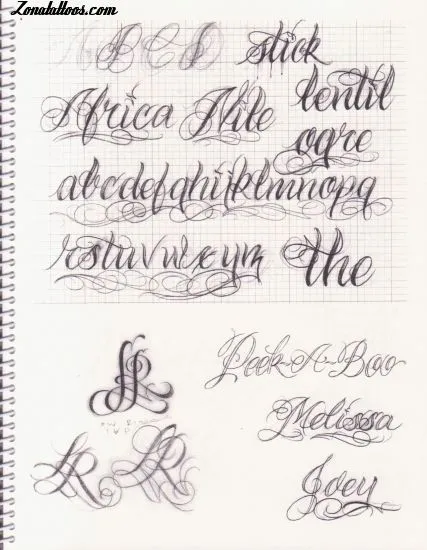 Zonatattoos.com
A B C D stick
Africa Nile lentil
ogre
abcdefghijklmnopq
rstuvwxyz the
Peek-A-Boo
Melissa
LR LR
Joey